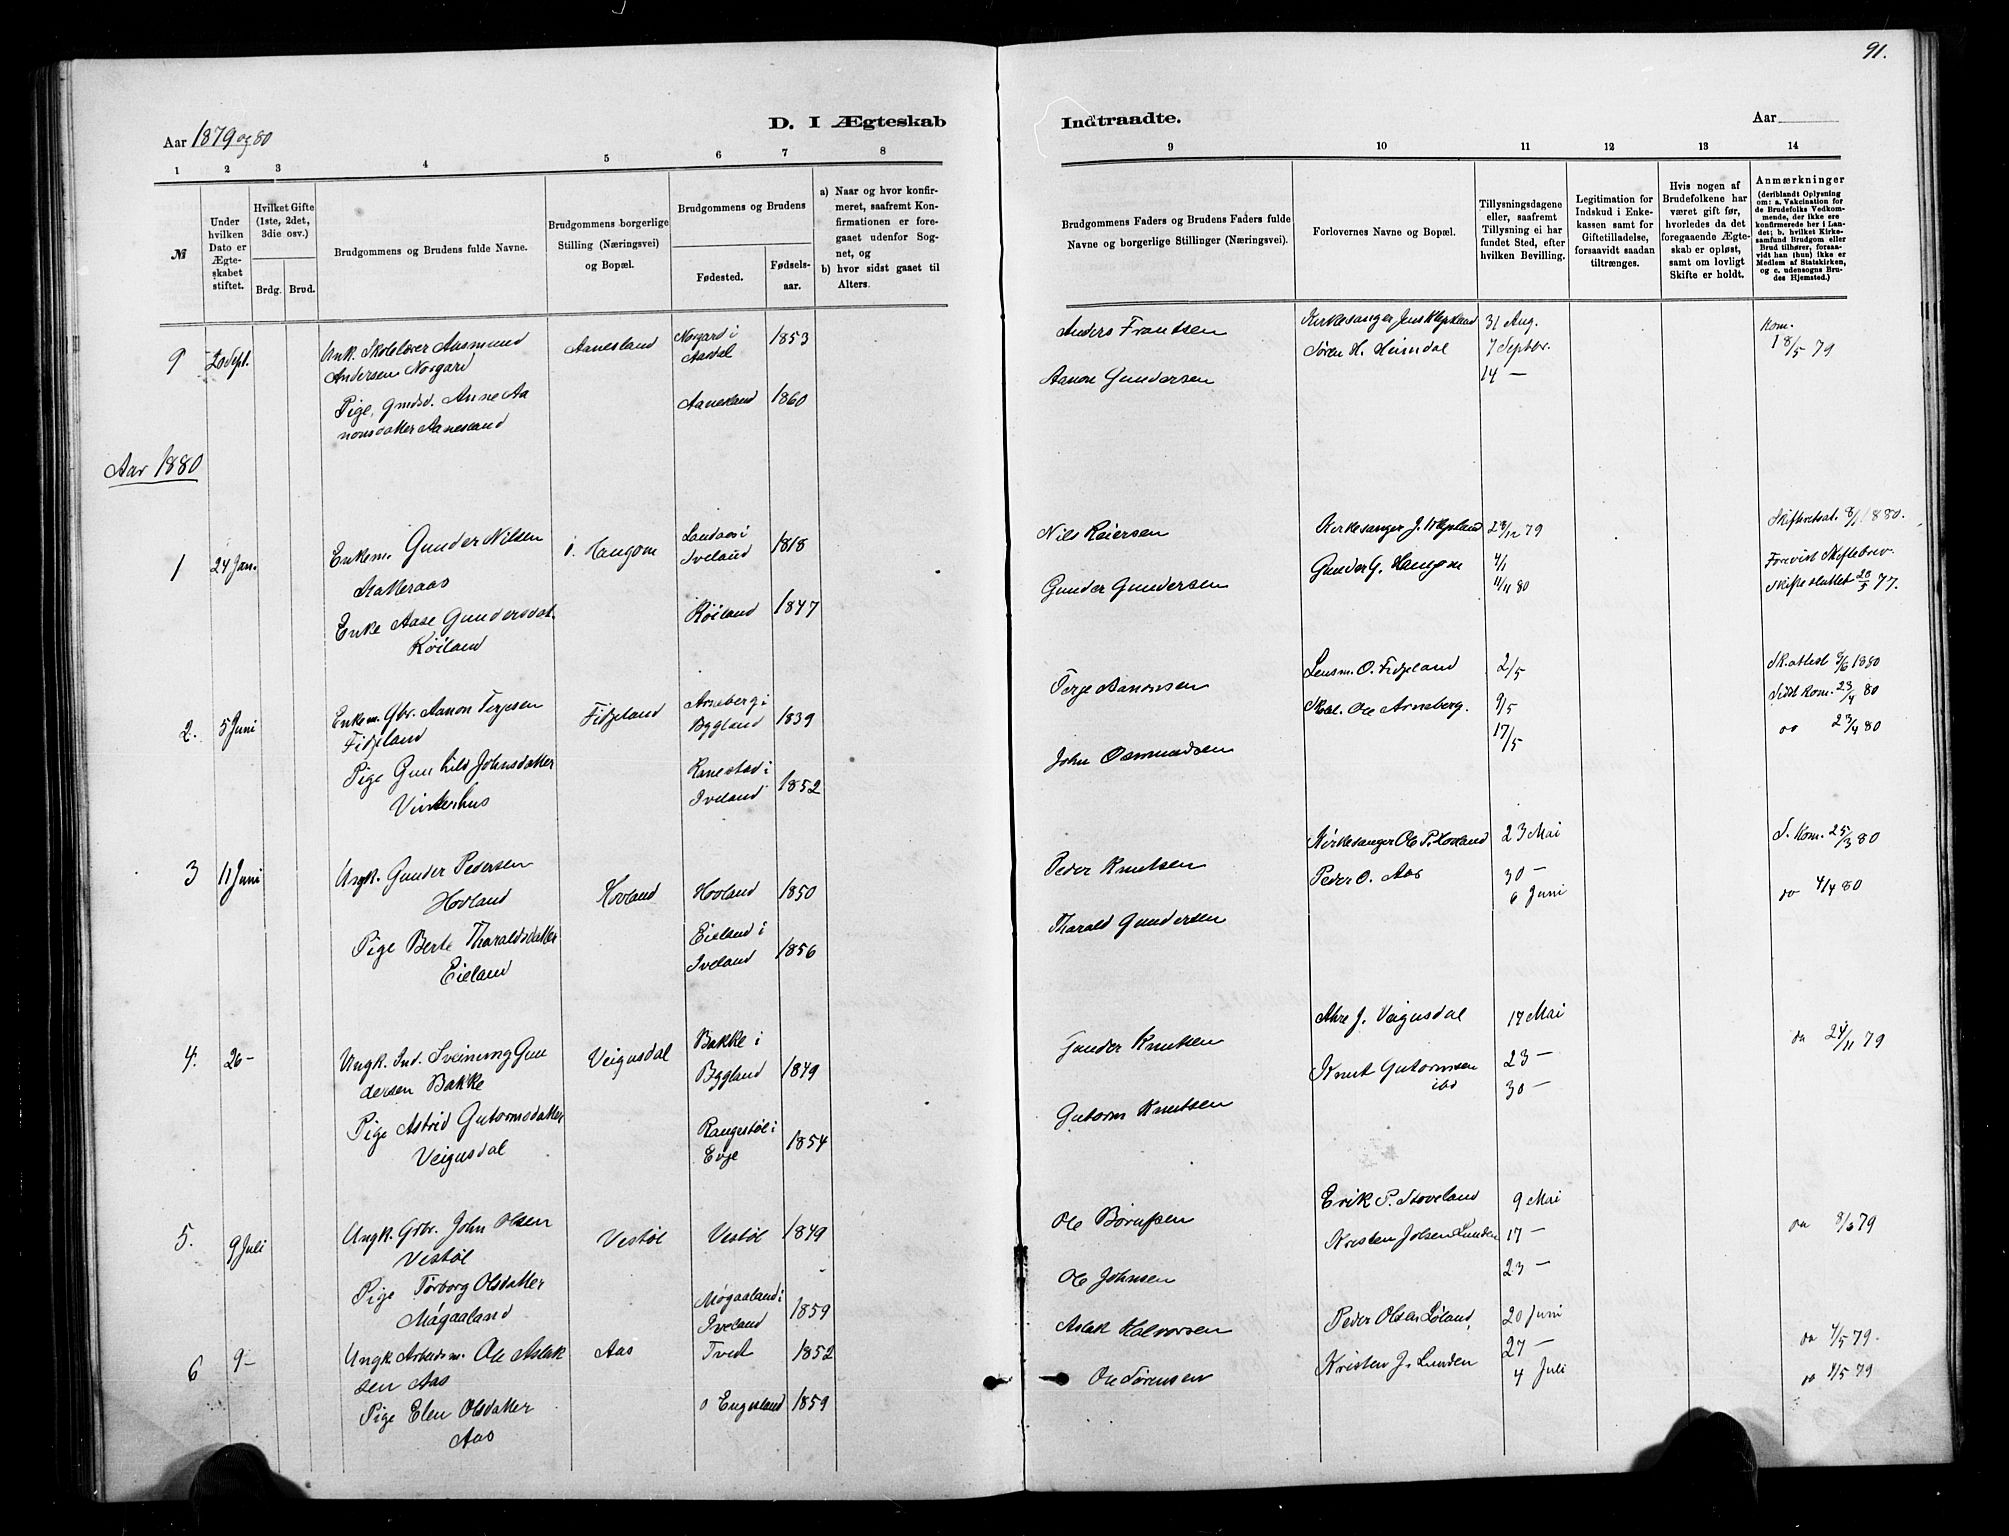 91.
D. I Ægteskab Indtraadte.
Aar 1879 og 80
Aar
1 2 3 4 5 6 7 8 9 10 11 12 13 14
№
Under hvilken Dato er Ægteskabet stiftet.
Hvilket Gifte (1ste, 2det, 3die osv.)
Brdg. Brud.
Brudgommens og Brudens fulde Navne.
Brudgommens borgerlige Stilling (Næringsvei) og Bopæl.
Brudgommens og Brudens
Fødested.
Fødselsaar.
a) Naar og hvor konfirmeret, saafremt Konfirmationen er foregaaet udenfor Sognet, og
b) hvor sidst gaaet til Alters.
Brudgommens Faders og Brudens Faders fulde Navne og borgerlige Stillinger (Næringsvei).
Forlovernes Navne og Bopæl.
Tillysningsdagene eller, saafremt Tillysning ei har fundet Sted, efter hvilken Bevilling.
Legitimation for Indskud i Enkekassen samt for Giftetilladelse, forsaavidt saadan tiltrænges.
Hvis nogen af Brudefolkene har været gift før, hvorledes da det foregaaende Ægteskab er opløst, samt om lovligt Skifte er holdt.
Anmærkninger
(deriblandt Oplysning om: a. Vakcination for de Brudefolks Vedkommende, der ikke ere konfirmerede her i Landet; b. hvilket Kirkesamfund Brudgom eller Brud tilhører, forsaavidt han (hun) ikke er Medlem af Statskirken, og c. udensogns Brudes Hjemsted.)
9 20 Sept.
Unk. Skolelærer Aasmund
Andersen Norgard
Aanesland
Norgard i
Aasdal
1853
Anders Frantsen
Kirkesanger Jens Klepsland
Søren H. Heimdal
31 Aug.
7 Septbr.
14 —
Kom.
18/5 79
Pige, Gmdsd. Anne Aa
nonsdatter Aanesland
Aanesland 1860
Aanon Gundersen
Aar 1880
1 24 Jan.
Enkem. Gunder Nilsen
Hatteraas
i. Haugom
Iveland
1818
Nils Reiersen
Kirkesanger J. Klepsland
Gunder G. Haugom
28/12 79
4/1
11/11 80
Skifteretsat. 8/1 1880.
Forevist Skiftebrev
Skifte sluttet 20/5 77.
Enke Aase Gundersdat.
Røiland
Røiland 1847
Gunder Gundersen
2. 5 Juni
Enkem. Gbr. Aanon Terjesen
Fidjeland
Fidjeland
Arneberg i
Bygland
1839
Terje Aanonsen
Lensm. O. Fidjeland
Skol. Ole Arneberg.
2/5
9/5
17/5
Sk.attest 5/6 1880
Sidst kom. 23/4 80
do 23/4 80
Pige Gunhild Johnsdatter
Vinterhus
Iveland
1852
John Osmundsen
3 11 Juni
Ungk. Gunder Pedersen
Hovland
Hovland
Hovland 1850
Peder Knutsen
Kirkesanger Ole P. Hovland
Peder O. Aas
23 Mai
30 —
6 Juni
S. Kom. 25/3 80
do 4/4 80
Pige Berte Tharaldsdatter
Eieland
Eieland i
Iveland
1856
Tharald Gundersen
4. 26 —
Ungk. Ind. Sveinung Gun
dersen Bakke
Veigusdal
Bakke i
Bygland
1849
Gunder Knutsen
Aanre J. Veigusdal
Knut Gutormsen
ibd
17 Mai
23 —
30 —
do 24/11 79
Pige Astrid Gutormsdatter
Veigusdal
Rangestøl i
Evje
1854
Gutorm Knutsen
5. 9 Juli
Ungk. Grbr. John Olsen
Vestøl
Vestøl
Vestøl 1849
Ole Børufsen
Erik P. Stoveland
Kristen Jolsen Lunden
9 Mai
17 —
23 —
do 8/6 79
Pige Torborg Olsdatter
Møgaaland
Møgaaland i
Iveland
1859
Ole Johnsen
6 9 —
Ungk. Arbeidsm. Ole Aslak
sen Aas
Aas
Tveit 1852
Aslak Halvorsen
Peder Olsen Løland
Kristen J. Lunden
20 Juni
27 —
4 Juli
do 4/5 79.
do 4/5 79
Pige Elen Olsdatter
Aas
Engesland 1859
Ole Sørensen